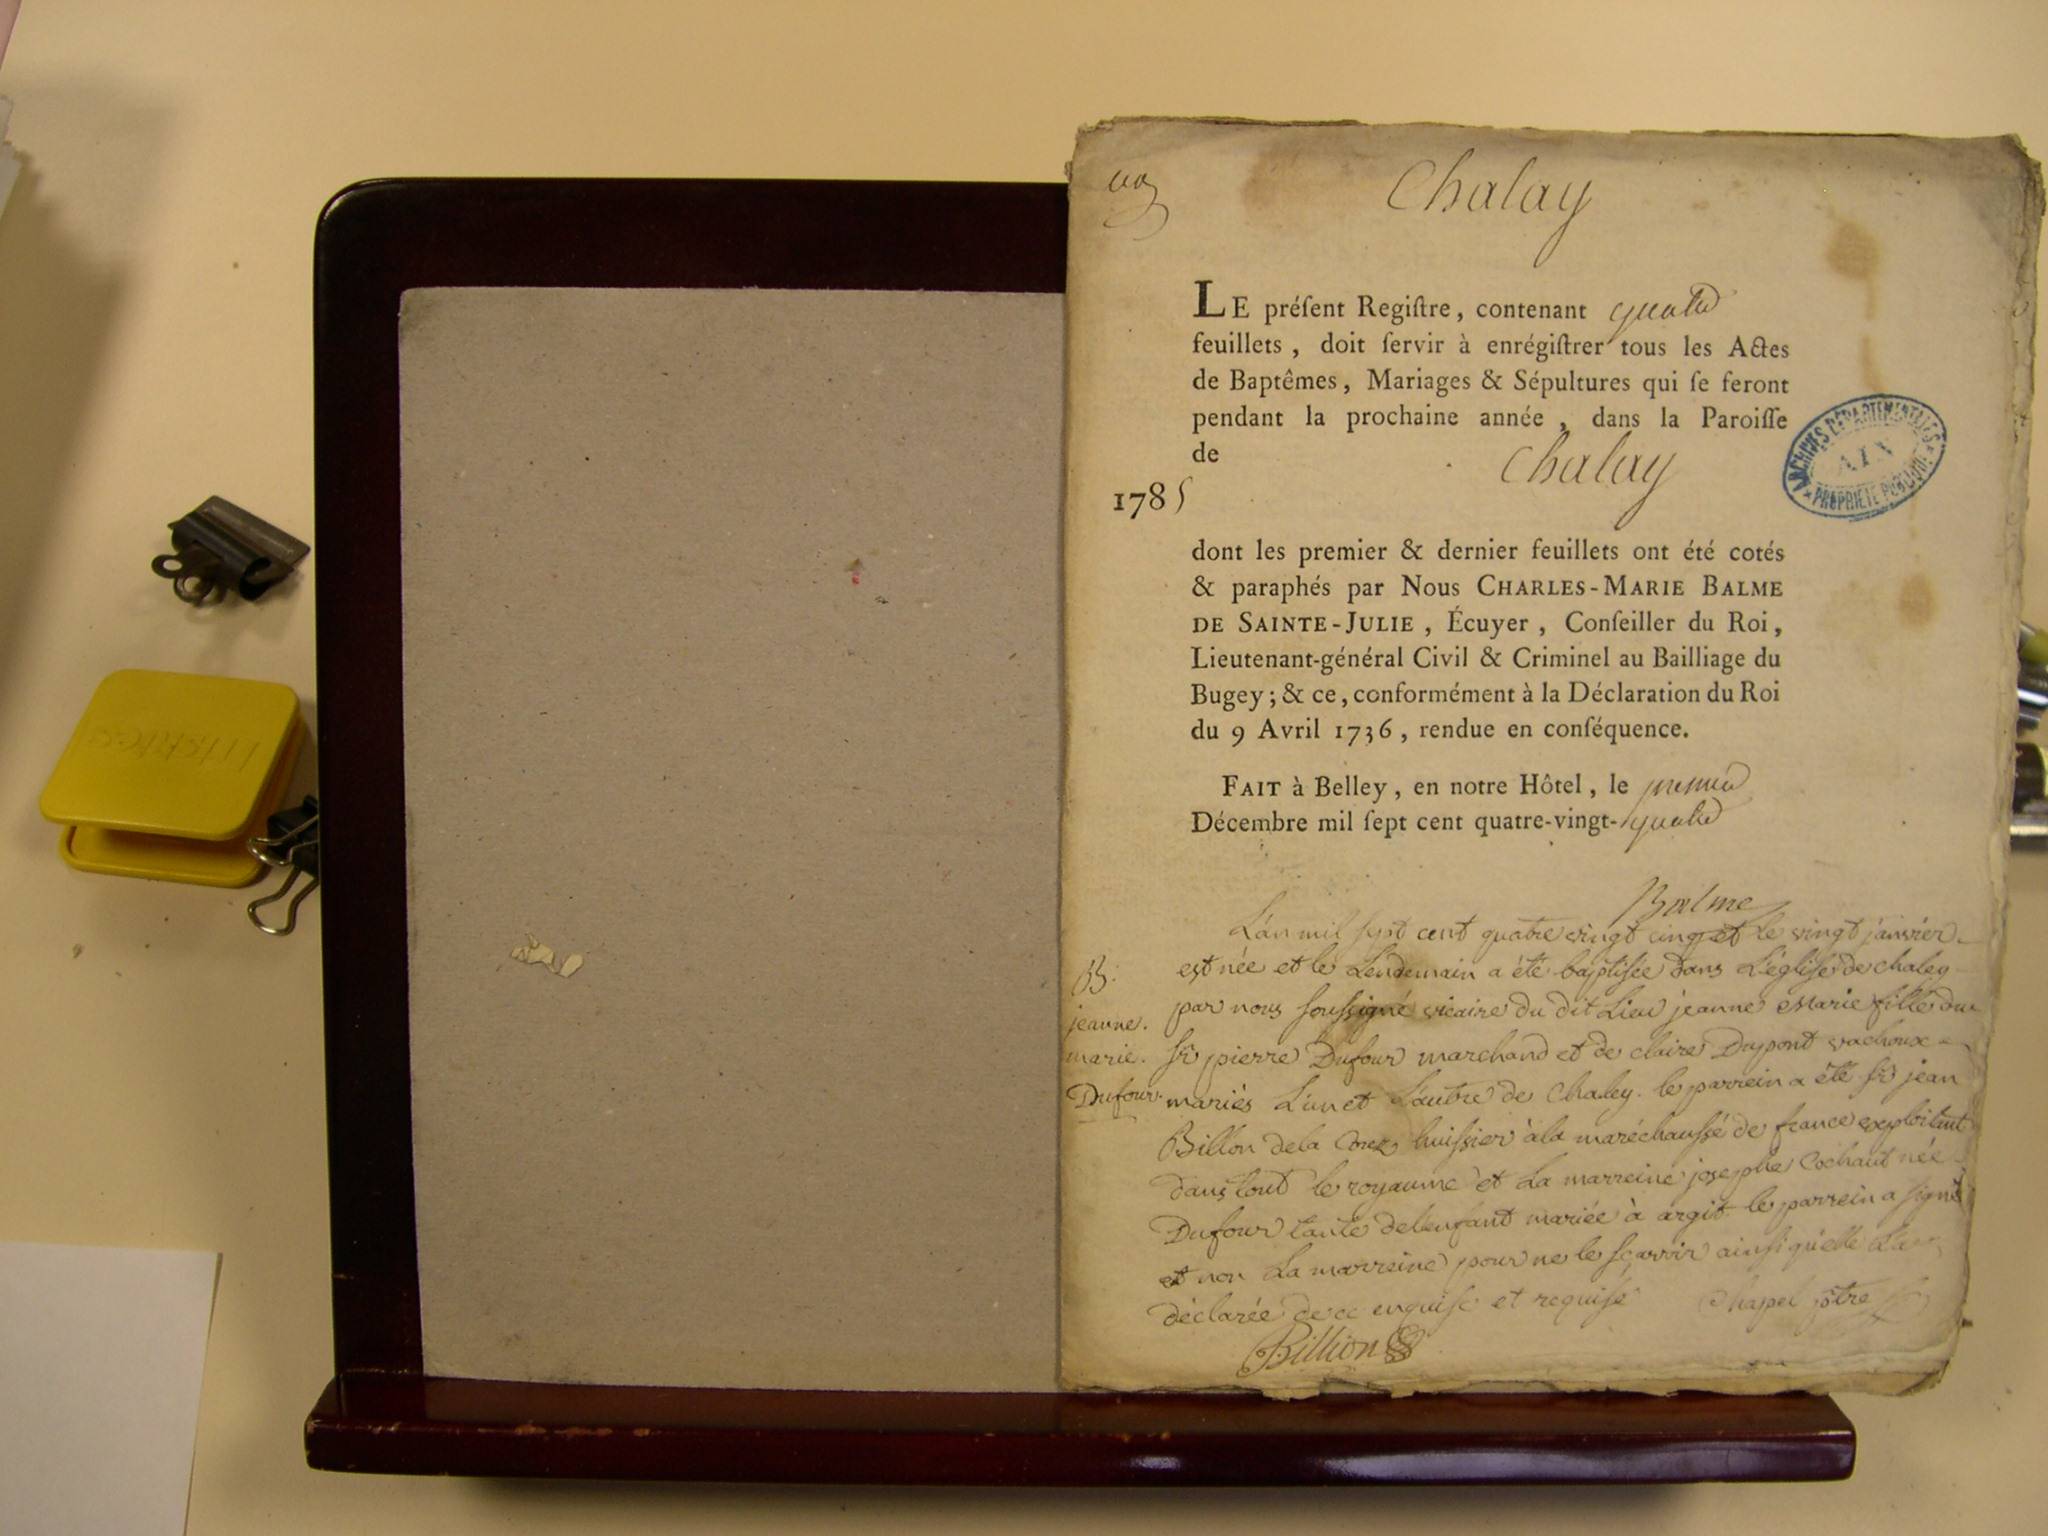 Chalay
LE préſent Regiſtre, contenant quatre
feuillets, doit ſervir à enrégiſtrer tous les Actes
de Baptêmes, Mariages & Sépultures qui ſe feront
pendant la prochaine année, dans la Paroiſſe
de Chalay
1785
ARCHIVES DÉPARTEMENTALES
AIN
PROPRIÉTÉ PUBLIQUE
dont les premier & dernier feuillets ont été cotés
& paraphés par Nous CHARLES-MARIE BALME
DE SAINTE-JULIE, Écuyer, Conſeiller du Roi,
Lieutenant-général Civil & Criminel au Bailliage du
Bugey; & ce, conformément à la Déclaration du Roi
du 9 Avril 1736, rendue en conſéquence.
FAIT à Belley, en notre Hôtel, le premier
Décembre mil ſept cent quatre-vingt-quatre
Balme
L'an mil sept cent quatre vingt cinq et le vingt janvier
est née et le Lendemain a été baptisée dans L'église de chaley
par nous soussigné vicaire du dit Lieu jeanne Marie fille du
sr pierre Dufour marchand et de claire Dupont vachoux
mariés L'un et L'autre de Chaley. le parrein a été sr jean
Billon dela huissier à la maréchaussé de france exploitant
dans tout le royaume et La marreine josephe Cochaut née
Dufour tante de l'enfant mariée à argit le parrein a signé
et non La marreine pour ne le sçavoir ainsi qu'elle L'a
déclarée de ce enquise et requise Chapel ptre
Billion
B.
jeanne.
marie.
Dufour.